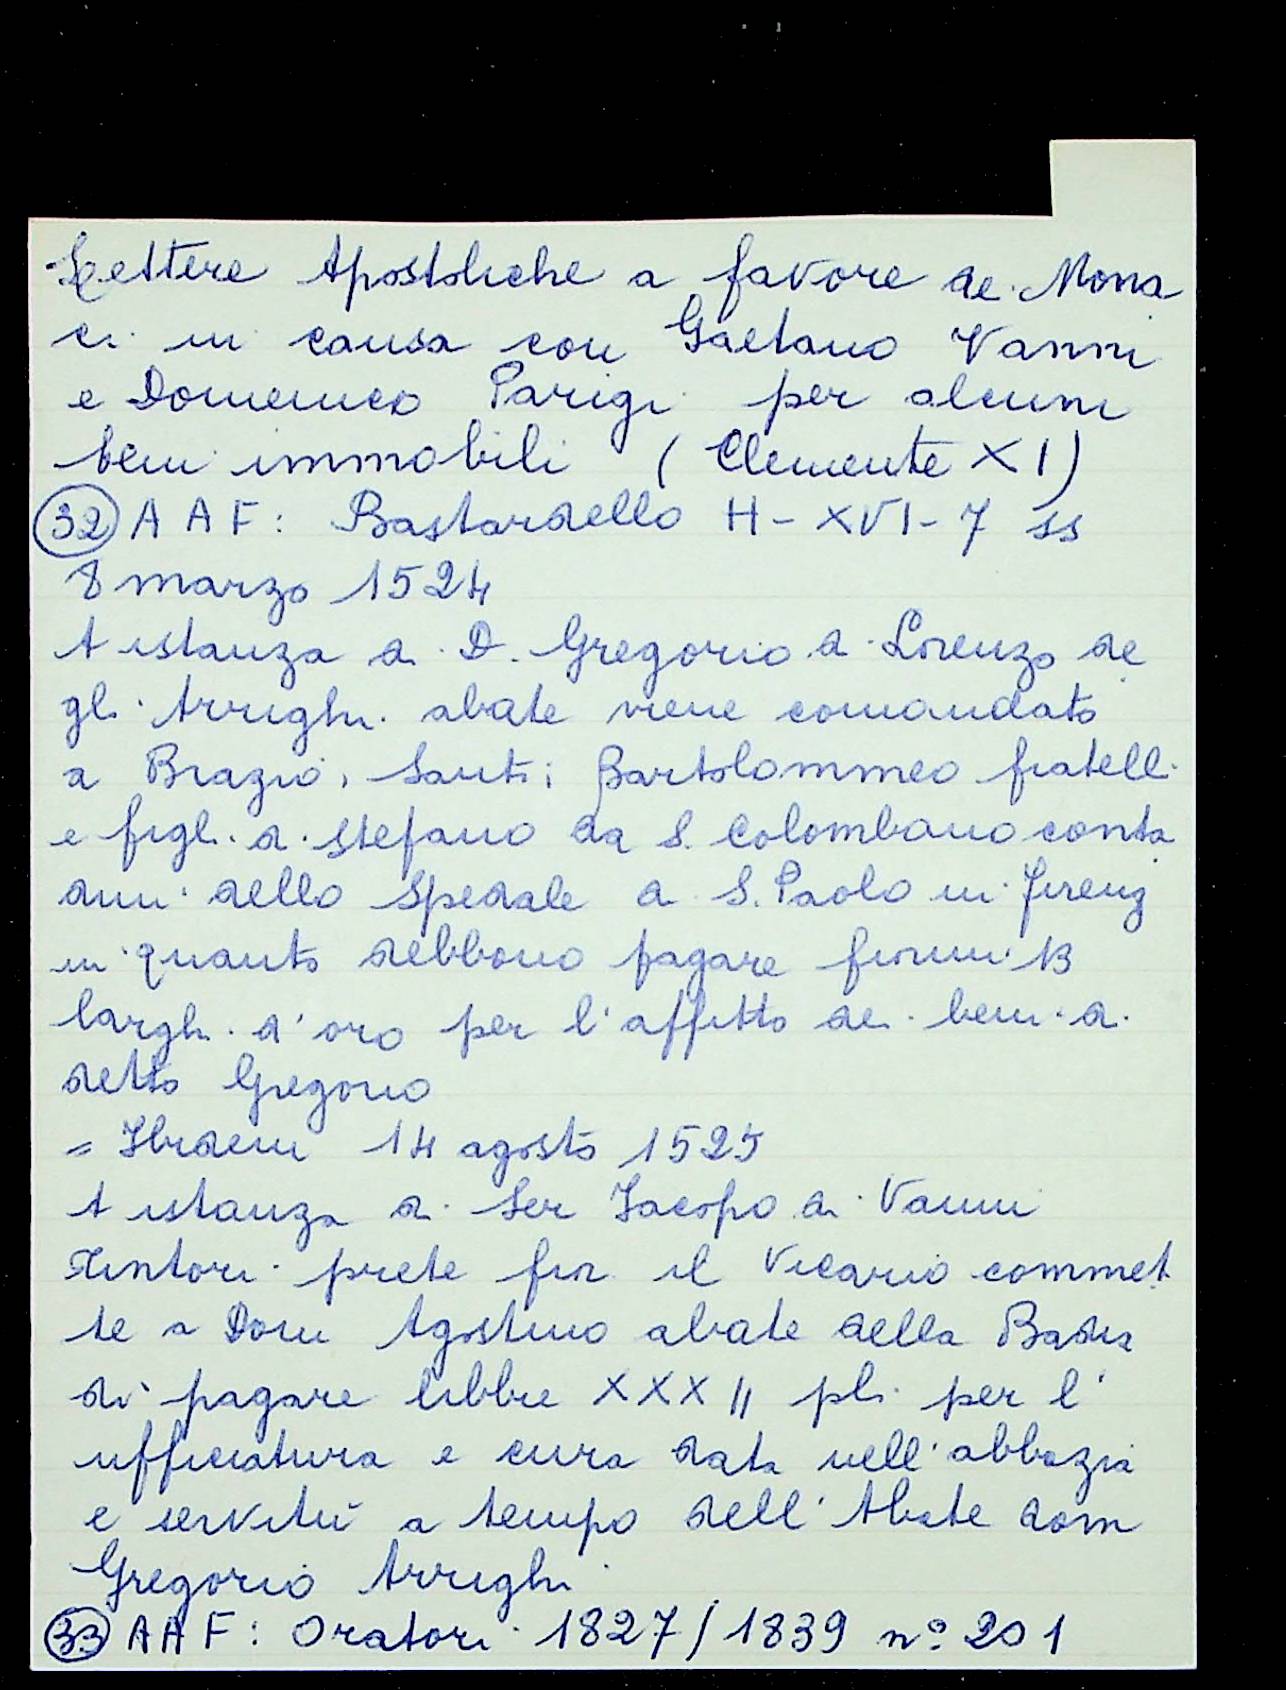 Lettere Apostoliche a favore dei Mona
ci in causa con Gaetano Vanni
e Domenico Parigi per alcuni
beni immobili (Clemente XI)
32 AAF: Bastardello H-XVI-7 ss
8 marzo 1524
A istanza di D. Gregorio di Lorenzo de
gli Arrighi abate viene comandato
a Biagio, Santi, Bartolommeo fratelli
e figli di Stefano da S. Colombano conta
dini dello Spedale di S. Paolo in Firenz
in quanto debbono pagare fiorini 13
larghi d'oro per l'affitto dei beni di
detto Gregorio
= Ibidem 14 agosto 1525
A istanza di Ser Jacopo di Vanni
Tintori prete fior. il Vicario commet
te a Dom Agostino abate della Badia
di pagare libbre XXXII pli. per l'
ufficiatura e cura data nell'abbazia
e servitù a tempo dell'Abate dom
Gregorio Arrighi
33 AAF: Oratori 1827/1839 n° 201